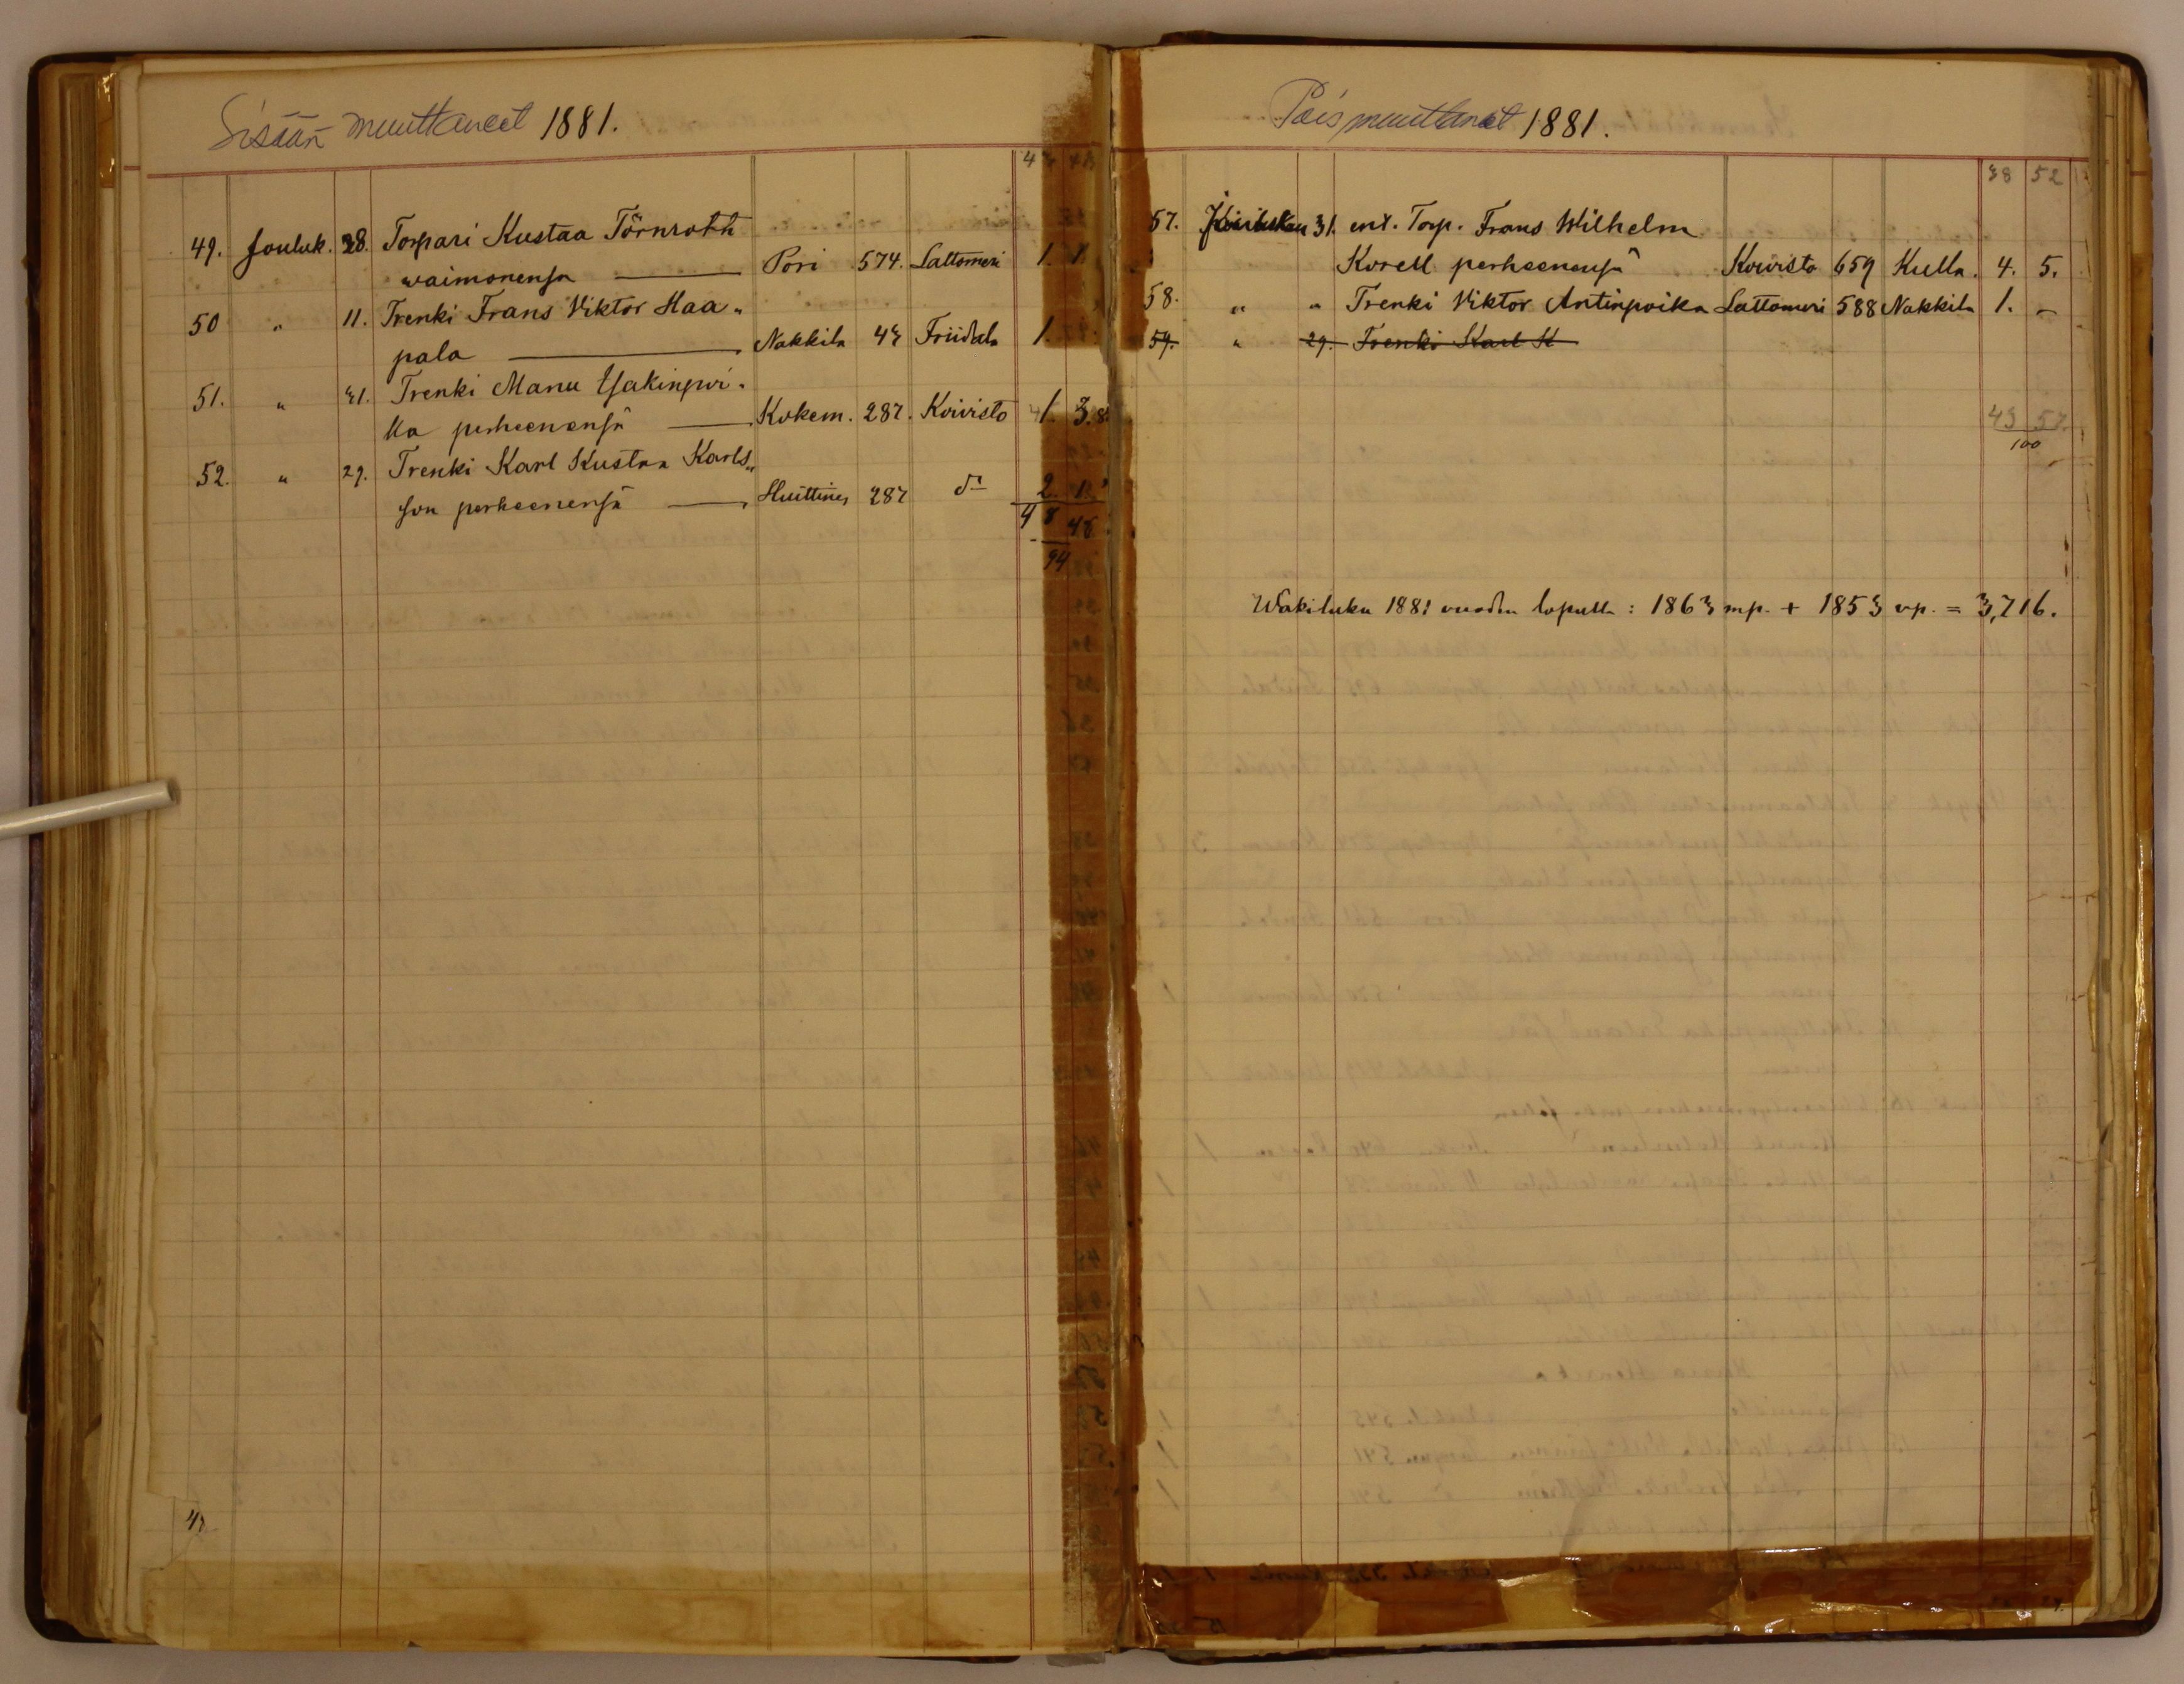 Sisään muuttaneet 1881.
49. Jouluk. 28. Torpari Kustaa Törnroth
waimonensa — Pori 574. Lattomeri 1. 1.
50 " 11. Trenki Frans Viktor Haa„
pala — Nakkila 43 Friidala 1.
51. " 31. Trenki Manu Isakinpoi„
ka perheenensä — Kokem. 287. Koivisto 1. 3.
52. " 29. Trenki Karl Kustaa Karls„
son perheenensä — Huittinen 287 do 2. 1.
48 46
94
47
Pois muuttaneet 1881.
38 52
57. 31. ent. Torp. Frans Wilhelm
Korell perheenensä Koivisto 659 Kulla. 4. 5.
58. " " Trenki Viktor Antinpoika Lattomeri 588 Nakkila 1. -
59. " 29. Trenki Karl K
43 57.
100
Wäkiluku 1881 vuoden lopulla : 1863 mp. + 1853 vp. = 3,716.